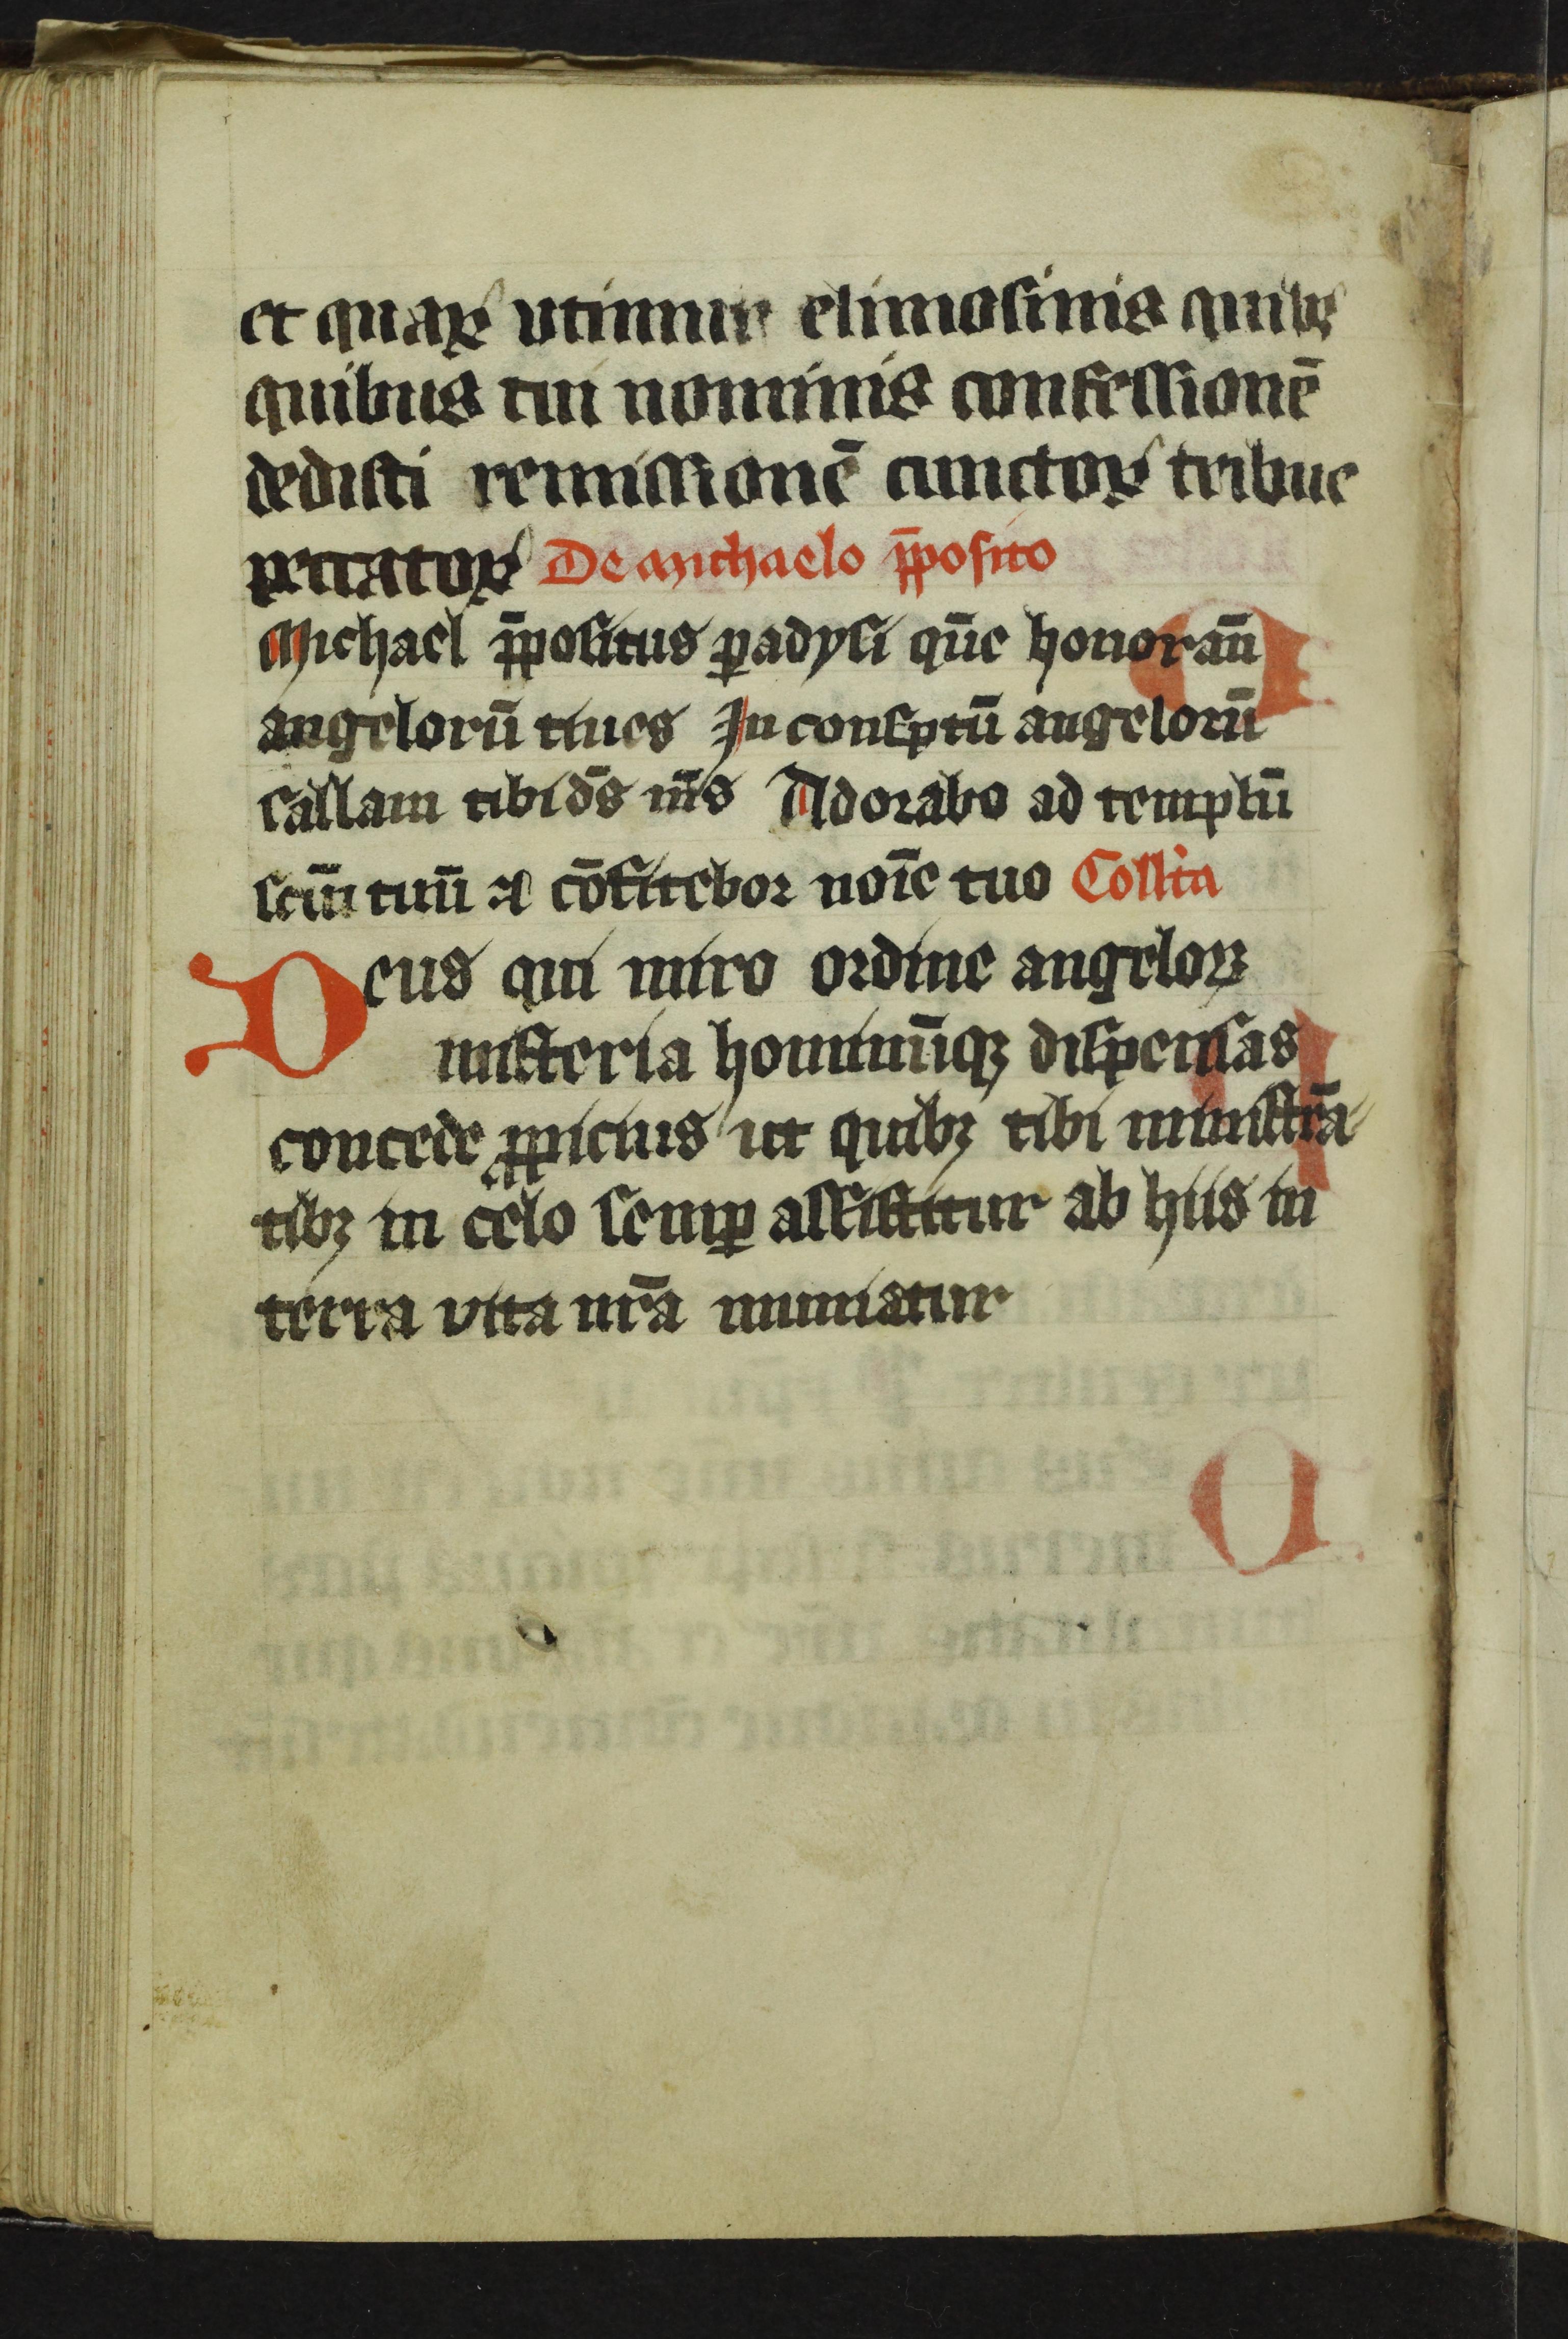 et quaꝝ vtimur elimosinis quibꝫ
quibus tui nominis confessionē
dedisti remissionē cunctoꝝ tribue
peccatoꝝ De Michaelo p̄posito
Michael p̄positus ꝑadysi qūe honorān̄
angelorū ciues In conspc̄tū angelorū
psallam tibi dē̄s m̄s Adorabo ad templū
scm̄ tuū ⁊ cōfitebor noīe tuo Collca
Deus qui miro ordine angeloꝝ
misteria hominūqꝫ dispensas
concede ꝓpicius ut quibꝫ tibi ministrā-
tibꝫ in celo semꝑ assistitur ab hiis in
terra vita nrā muniatur